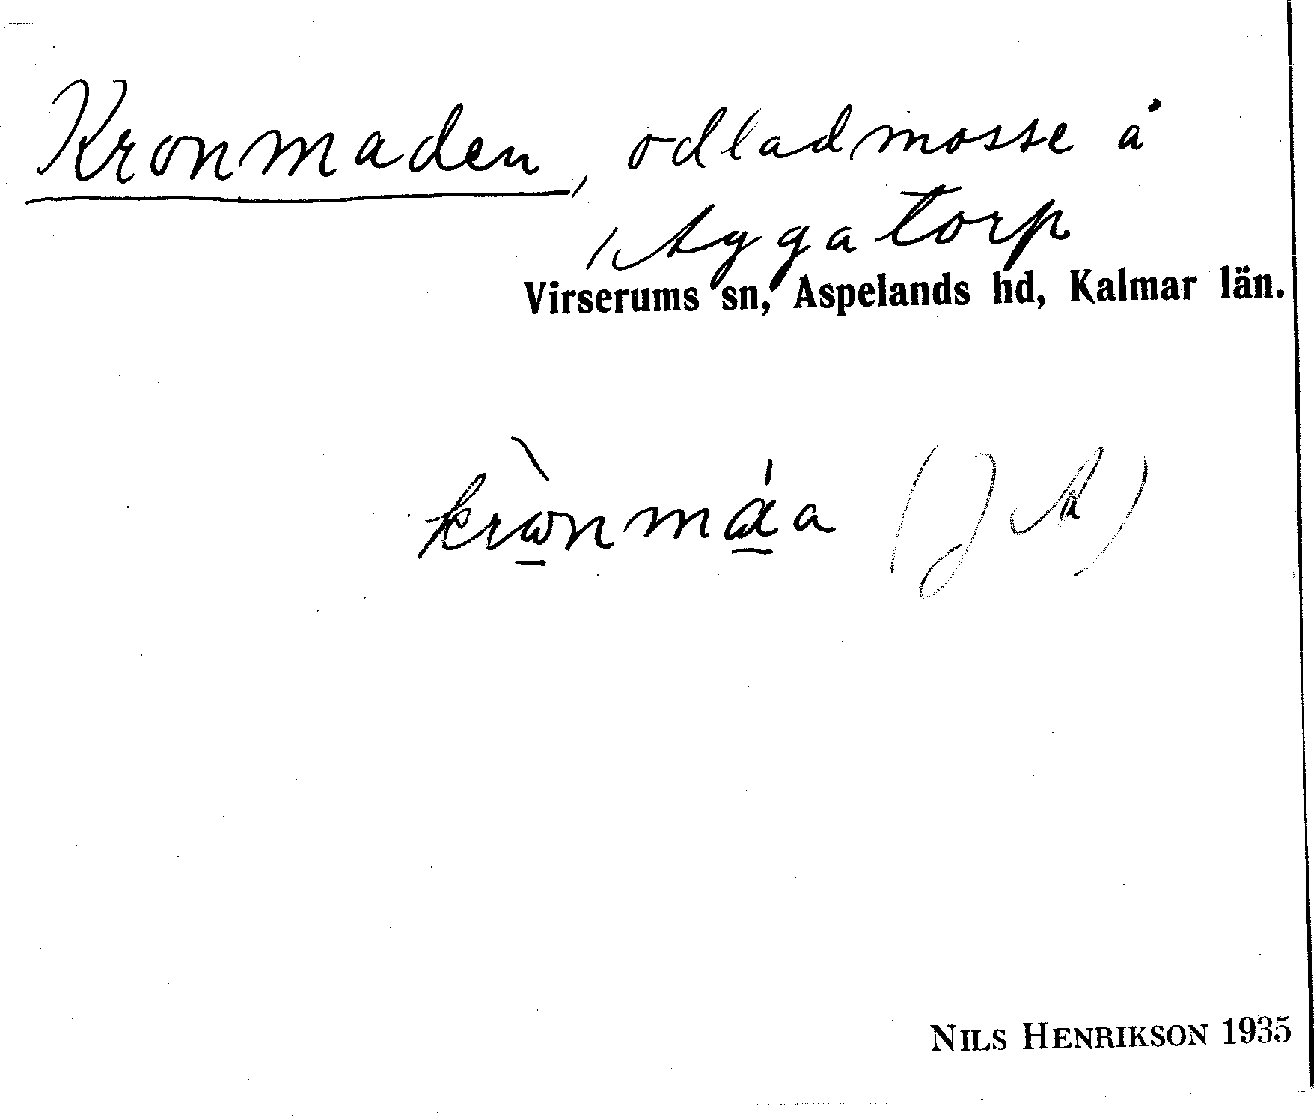 Kronmaden, odlad mosse å
Aggatorp
Virserums sn, Aspelands hd, Kalmar län.
NILS HENRIKSON 1935